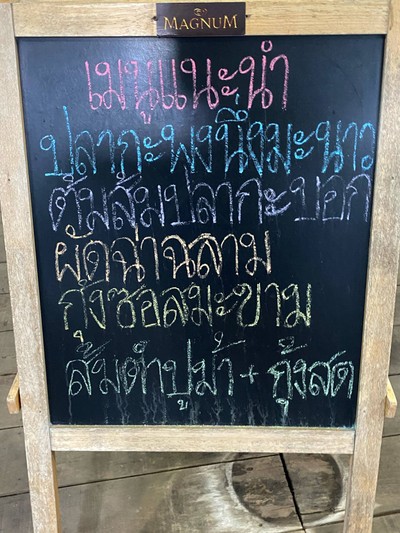 MAGNUM
เมนูแนะนำ
ปลากะพงนึ่งมะนาว
ต้มส้มปลากะบอก
ผัดฉ่าฉลาม
กุ้งซอสมะขาม
ส้มตำปูม้า + กุ้งสด